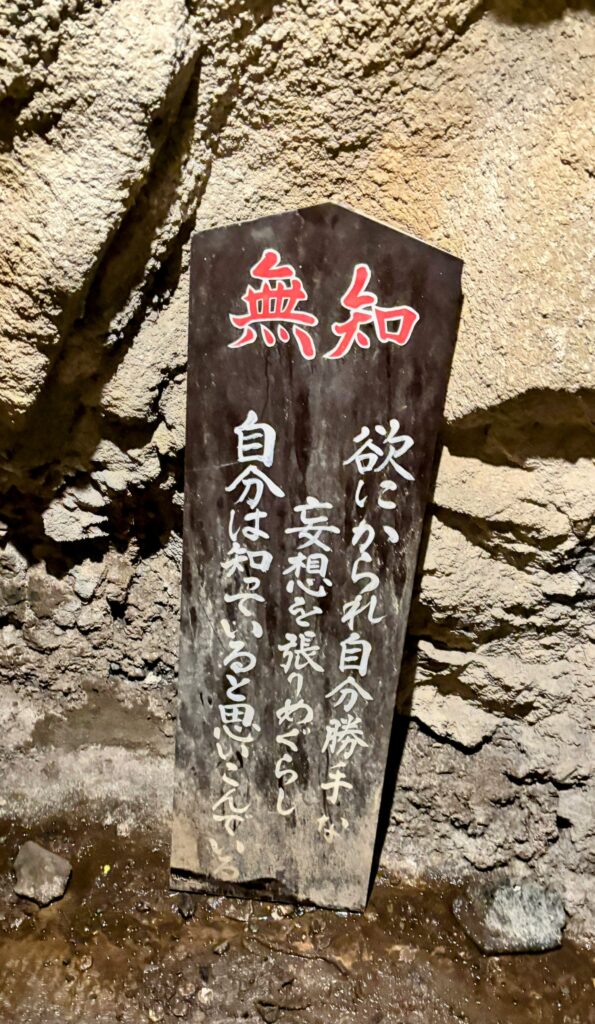 無知
欲にかられ自分勝手な
妄想を張りめぐらし
自分は知っていると思いこんでいる